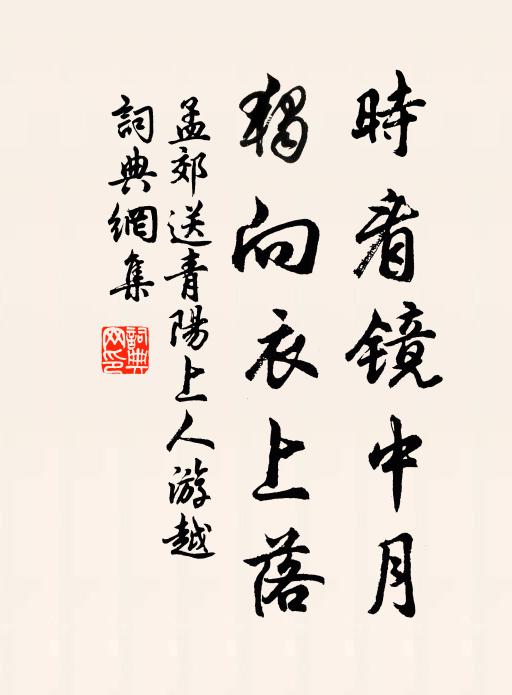 時看鏡中月
獨向衣上落
孟郊送青陽上人游越
詞典網集
詞典网印